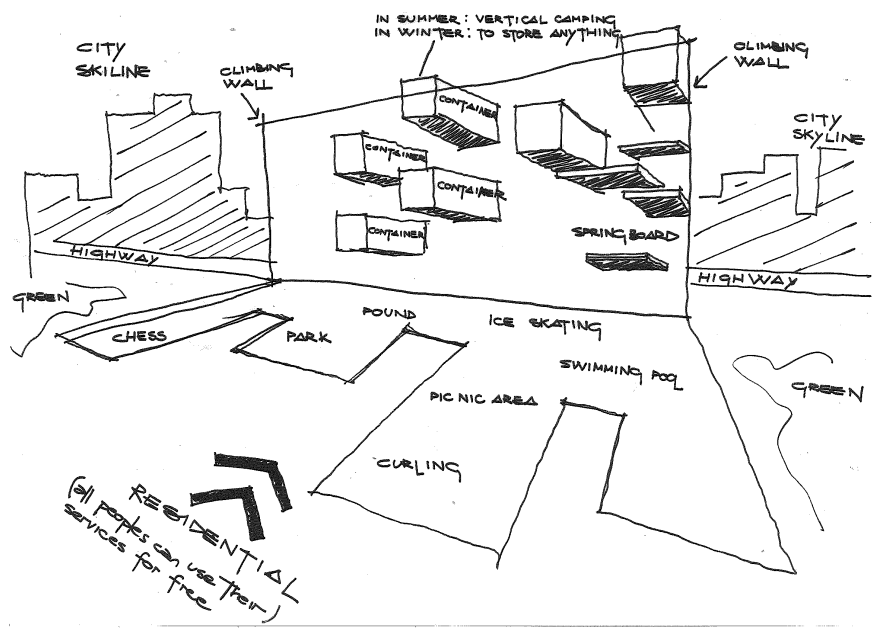 IN SUMMER: VERTICAL CAMPING
IN WINTER: TO STORE ANYTHING
CITY
SKILINE
CLIMBING
WALL
CLIMBING
WALL
CITY
SKYLINE
CONTAINER
CONTAINER
CONTAINER
CONTAINER
SPRINGBOARD
HIGHWAY
HIGHWAY
GREEN
CHESS
PARK
POUND
ICE SKATING
SWIMMING POOL
PICNIC AREA
GREEN
CURLING
RESIDENTIAL
(all peoples can use their)
services for free